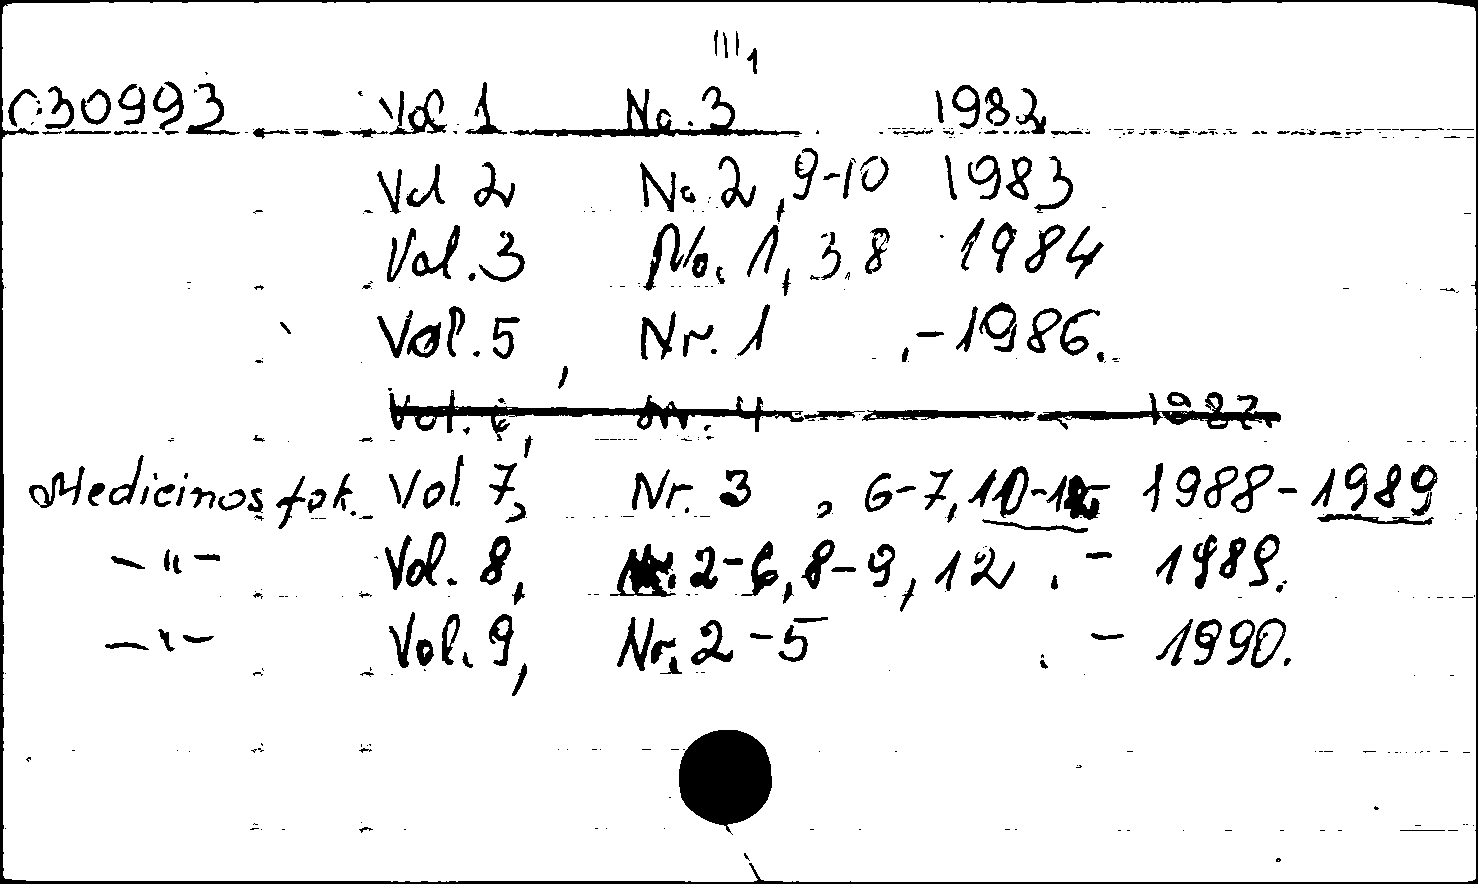 III1
030993 Vol 1 No. 3 1982
Vol 2 No. 2, 9-10 1983
Vol. 3 No. 1, 3, 8 1984
Vol. 5, Nr. 1 . - 1986.
Vol. 6, Nr. 4 1987.
Medicinos fak. Vol 7, Nr. 3, 6-7, 10-12 1988-1989
- " - Vol. 8, Nr. 2-6, 8-9, 12 . - 1989.
- " - Vol. 9, Nr. 2-5 . - 1990.